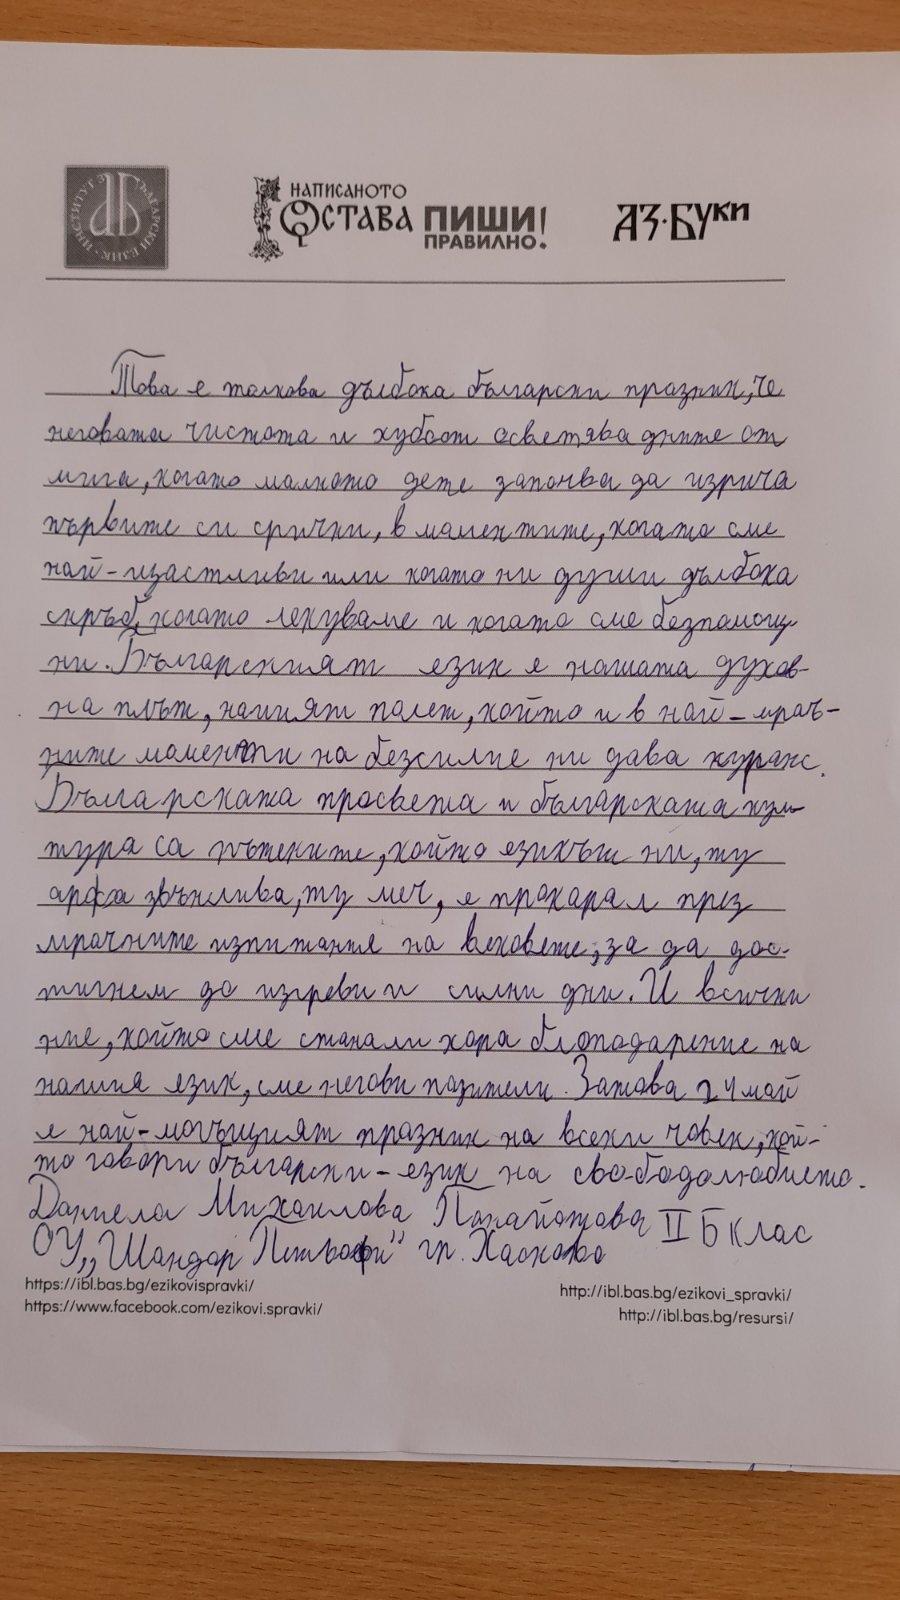 ИНСТИТУТ ЗА БЪЛГАРСКИ ЕЗИК
НАПИСАНОТО
ОСТАВА ПИШИ
ПРАВИЛНО!
АЗ·БУКИ
Това е толкова дълбоко български празник, че
неговата чистота и хубост осветява дните от
мига, когато малкото дете започва да изрича
първите си срички, в моментите, когато сме
най-щастливи или когато ни души дълбока
скръб, когато лекуваме и когато сме безпомощ-
ни. Българският език е нашата духов-
на плът, нашият полет, който и в най-мрач-
ните моменти на безсилие ни дава кураж.
Българската просвета и българската кул-
тура са пътеките, който езикът ни, ту
арфа звънлива, ту меч, е прокарал през
мрачните изпитания на вековете, за да дос-
тигнем до изгреви и силни дни. И всички
ние, който сме станали хора блоподарение на
нашия език, сме негови пазители. Затова 24 май
е най-могъщият празник на всеки човек, кой-
то говори български - език на свободолюбието.
Даниела Михаилова Панайотова II Б клас
ОУ „Шандор Петьофи" гр. Хасково
https://ibl.bas.bg/ezikovispravki/
http://ibl.bas.bg/ezikovi_spravki/
https://www.facebook.com/ezikovi.spravki/
http://ibl.bas.bg/resursi/